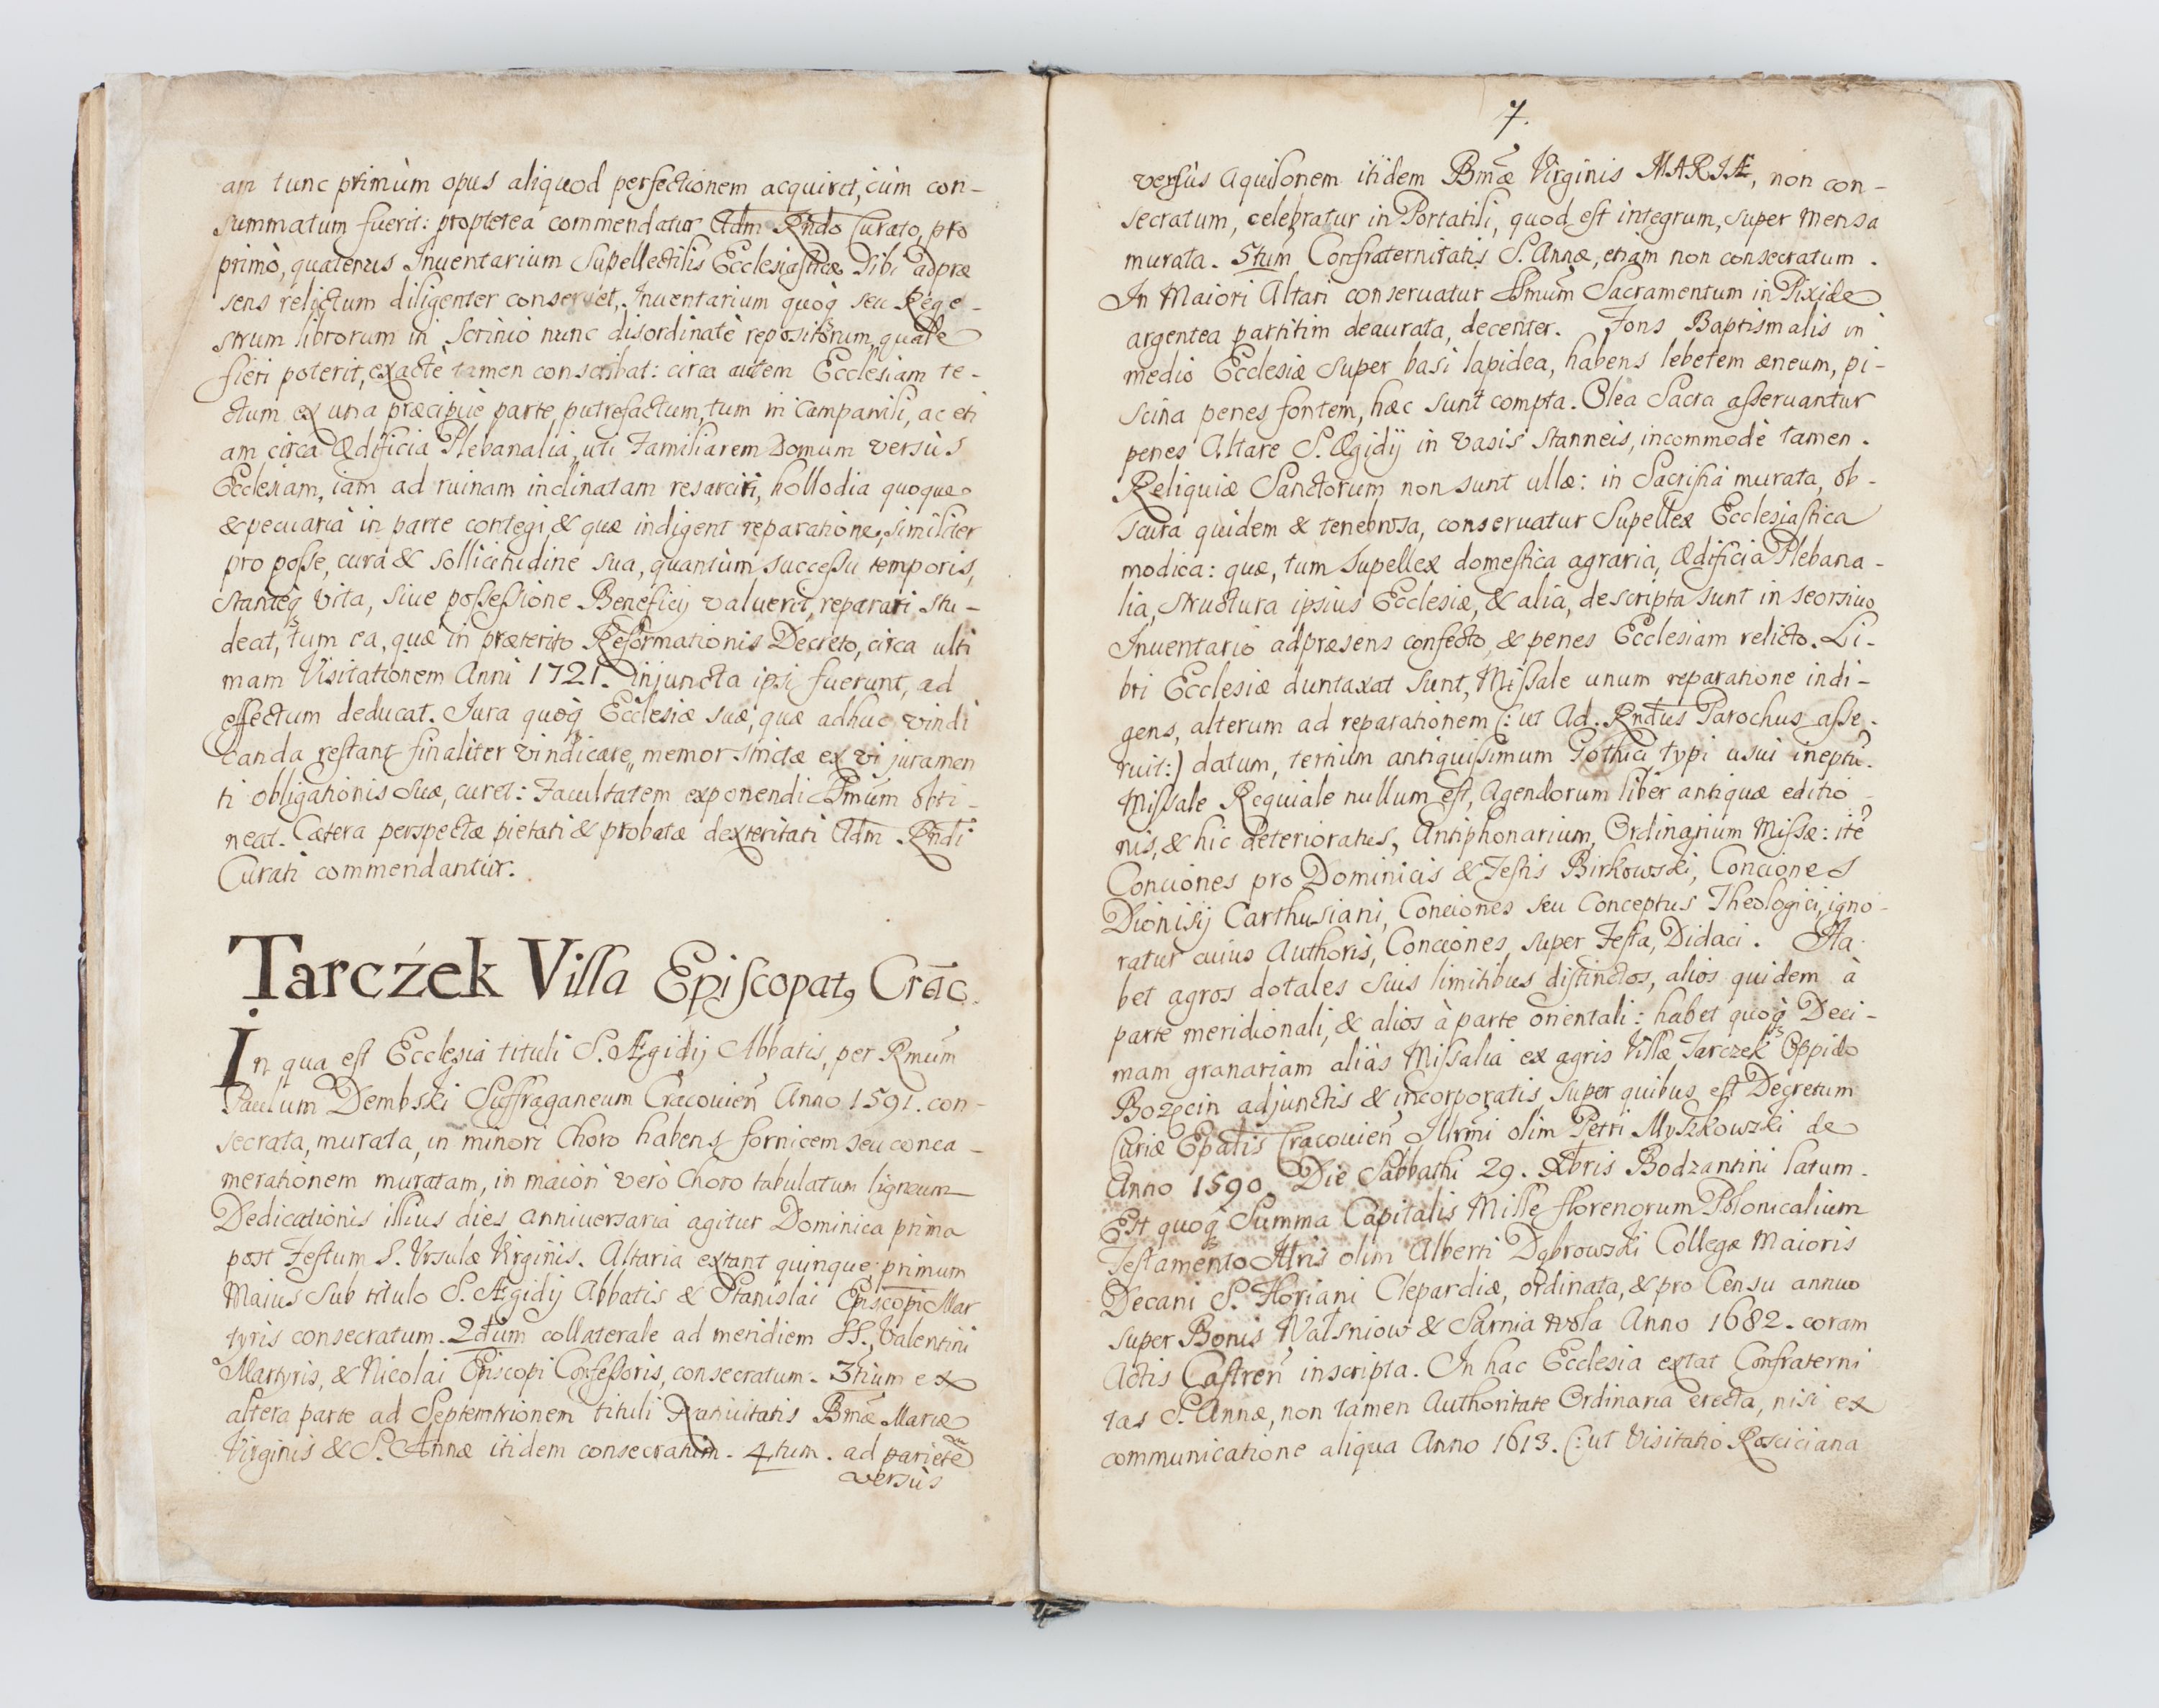 am tunc primùm opus aliquod perfectionem acquiret, cùm con-
summatum fuerit: propterea commendatur Adm Rndo Curato, pro
primò, quatenus Inventarium Supellectilis Ecclesiasticæ sibi adpræ
sens relictum diligenter conservet, Inventarium quoq̀ seu Rege-
strum librorum in scrinio nunc disordinatè repositorum, quale
fieri poterit, exactè tamen conscribat: circa autem Ecclesiam te-
ctum ex una præcipuè parte putrefactum, tum in Campanili, ac eti
am circa Ædificia Plebanalia, uti Familiarem Domum versùs
Ecclesiam, iam ad ruinam inclinatam resarciri, hollodia quoque
& pecuaria in parte contegi, & quæ indigent reparatione, similiter
pro posse, cura & sollicitudine sua, quantùm successu temporis,
stanteq̀ vita, siue possessione Beneficij valuerit, reparari stu-
deat, tum ea, quæ in præterito Reformationis Decreto, circa ulti
mam Visitationem Anni 1721. injuncta ipsi fuerunt, ad
effectum deducat. Jura quoq̀ Ecclesiæ suæ, quæ adhuc vindi
canda restant finaliter vindicare, memor strictæ ex vi juramen
ti obligationis suæ, curet: Facultatem exponendi SSmum obti-
neat. Cætera perspectæ pietati & probatæ dexteritati Adm. Rndi
Curati commendantur.
Tarczek Villa Episcopat, Crac.
In qua est Ecclesia tituli S. Ægidij Abbatis, per Rmum
Paulum Dembski Suffraganeum Cracouien Anno 1591. con-
secrata, murata, in minori Choro habens fornicem seu conca-
merationem muratam, in maiori verò Choro tabulatum ligneum
Dedicationis illius dies anniversaria agitur Dominica prima
post Festum S. Vrsulæ Virginis. Altaria extant quinque: primum
Maius sub titulo S. Ægidij Abbatis & Stanislai Episcopi Mar
tyris consecratum. 2dum collaterale ad meridiem SS. Valentini
Martyris, & Nicolai Episcopi Confessoris, consecratum. 3tium ex
altera parte ad Septemtrionem tituli Nativitatis Bmæ Mariæ
Virginis & S. Annæ itidem consecratum. 4tum. ad parietē
versùs
7.
versùs Aquilonem itidem Bmæ Virginis MARIÆ, non con-
secratum, celebratur in Portatili, quod est integrum, super mensa
murata. 5tum Confraternitatis S. Annæ, etiam non consecratum.
In Maiori Altari conseruatur SSmum Sacramentum in Pixide
argentea partitim deaurata, decenter. Fons Baptismalis in
medio Ecclesiæ super basi lapidea, habens lebetem æneum, pi-
scina penes fontem, hæc sunt compta. Olea Sacra asseruantur
penes Altare S. Ægidij in vasis stanneis, incommodè tamen.
Reliquiæ Sanctorum non sunt ullæ: in Sacristia murata, ob-
scura quidem & tenebrosa, conseruatur Supellex Ecclesiastica
modica: quæ, tum supellex domestica agraria, Ædificia Plebana-
lia, structura ipsius Ecclesiæ, & alia, descripta sunt in seorsiuo
Inuentario adpræsens confecto, & penes Ecclesiam relicto. Li-
bri Ecclesiæ duntaxat sunt, Missale unum reparatione indi-
gens, alterum ad reparationem (: ut Ad. Rndus Parochus asse-
ruit:) datum, tertium antiquissimum Gothici typi usui ineptū.
Missale Requiale nullum est, Agendorum liber antiquæ editio-
nis, & hic deterioratus, Antiphonarium, Ordinarium Missæ: itē
Conciones pro Dominicis & Festis Birkowski, Conciones
Dionisij Carthusiani, Conciones seu Conceptus Theologici, igno-
ratur cuius Authoris, Conciones super Festa, Didaci. Ha-
bet agros dotales suis limitibus distinctos, alios quidem à
parte meridionali, & alios à parte orientali: habet quoq̀ Deci-
mam granariam aliàs Missalia ex agris Villæ Tarczek Oppido
Bozęcin adjunctis & incorporatis super quibus est Decretum
Curiæ Epalis Cracouien Illrmi olim Petri Myszkowski de
Anno 1590. Die Sabbathi 29. Xbris Bodzantini latum.
Est quoq̀ Summa Capitalis Mille florenorum Polonicalium
Testamento olim Alberti Dąbrowski Collegæ Maioris
Decani S. Floriani Clepardiæ, ordinata, & pro Censu annuo
super Bonis Walsniow & Sarnia wola Anno 1682. coram
Actis Castren inscripta. In hac Ecclesia extat Confraterni
tas S. Annæ, non tamen Authoritate Ordinaria erecta, nisi ex
communicatione aliqua Anno 1613. (: ut Visitatio Rosciciana